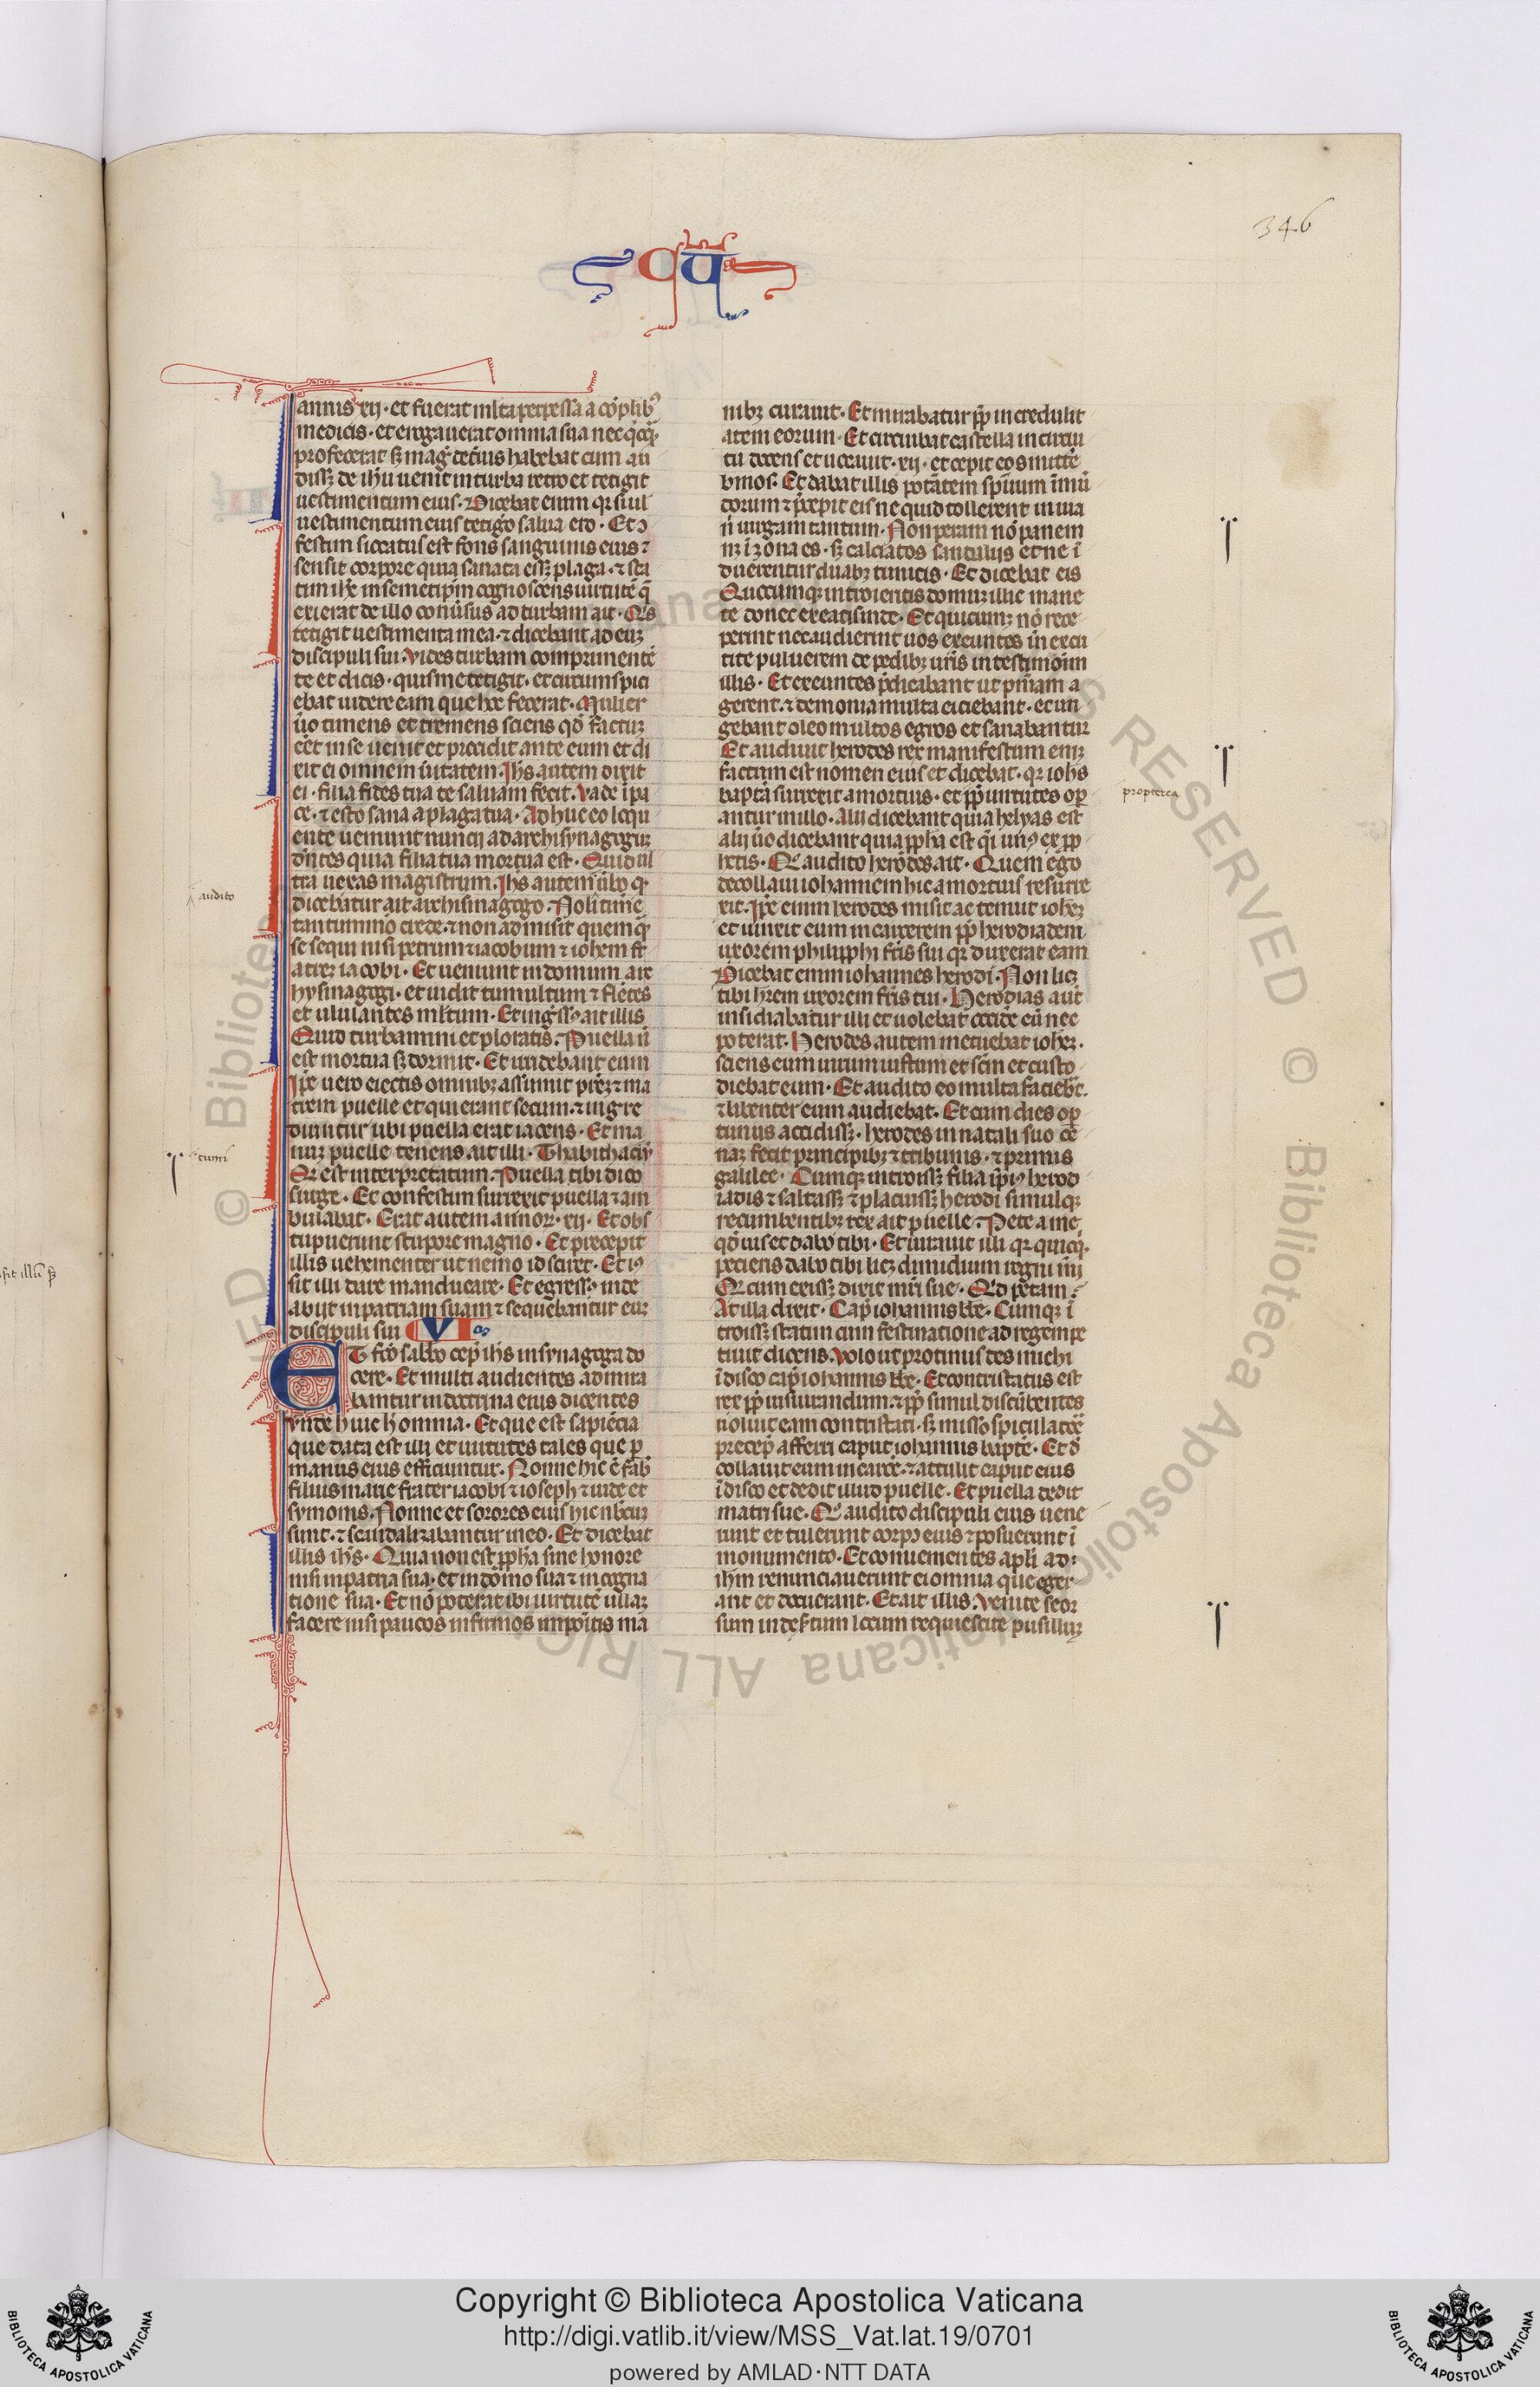 346
annis xij· et fuerat mlta perpessa a coplib᷒
medicis· et erogauerat omnia sua nec qcq̃·
profecerat sꝫ mag̾ deterius habebat cum au
dissꝫ de ihu uenit in turba retro et tetigit
uestimentum eius· Dicebat enim qꝛ si uł
uestimentum eius tetigo salua ero· Et ꝯ
festim siccatus est fons sanguinis eius ⁊
sensit corpore quia sanata essꝫ plaga· ⁊ sta
tim ihc in semetipm cognoscens uirtute q̃
exierat de illo conuersus ad turbam ait· Qis
tetigit uestimenta mea· ⁊ dicebant ad euꝫ
discipuli sui· Vides turbam comprimentē
te et dicis· quis me tetigit· et circumspici
ebat uidere eam que hoc fecerat· Mulier
ůo timens et tremens sciens qď factuꝫ
eēt in se uenit et procidit ante eum et di
xit ei omnem ůitatem. Ihs autem dixit
ei· filia fides tua te saluam fecit. Vade ī pa
ce· ⁊ esto sana a plaga tua· Adhuc eo loqu
ente ueniunt nuncij ad archisynagoguꝫ
dñtes quia filia tua mortua est· Quid ul
tra uexas magistrum. Ihs autem ůbo qď
audito
dicebatur ait archisinagogo· Noli time
tantummo crede· ⁊ non admisit quemq̃
se sequi nisi petrum ⁊ iacobum ⁊ iohem fr̄
atreꝫ iacobi· Et ueniunt in domum arc
hysinagogi· et uidit tumultum ⁊ flētes
et ululantes mltum· Et ingss᷒ ait illis
Quid turbamini et ploratis· Puella ñ
est mortua sꝫ dormit· Et irridebant eum
Ipe uero eiectis omnibꝫ assumit preꝫ ⁊ ma
trem puelle et qui erant secum· ⁊ ingre
diuntur ubi puella erat iacens· Et ma
tumi
nuꝫ puelle tenens ait illi· Thabitha ciij
Qd est interpretatum. Puella tibi dico
surge· Et confestim surrexit puella ⁊ am
bulabat· Erat autem annoꝝ· xij· Et obs
tupuerunt stupore magno· Et precepit
illis uehementer ut nemo id sciret· Et i᷒
sit illi dare manducare· Et egress᷒ inde
abiit in patriam suam ⁊ sequebantur euꝫ
discipuli sui VI
ET fco sabbo cep̃ ihs in synagoga do
cere· Et multi audientes admira
bantur in doctrina eius dicentes
Vnde huic h̄ omnia· Et que est sapiēcia
que data est illi et uirtutes tales que ꝑ
manus eius efficiuntur· Nonne hic ē fab̾
filius marie frater iacobi ⁊ ioseph ⁊ iude et
symonis· Nonne et sorores eius hic nbcuꝫ
sunt· ⁊ scandalizabantur in eo· Et dicebat
illis ihs· Quia non est ppha sine honore
nisi in patria sua· et in domo sua ⁊ in cogna
tione sua· Et nō poterat ibi uirtutē ullaꝫ
facere nisi paucos infirmos impoitis ma
nibꝫ curauit· Et mirabatur pp̃ incredulit
atem eorum· Et circuibat castella in circui
tu docens et uocauit· xij· et cepit eos mitte
binos· Et dabat illis potatem spiuum īmū
dorum ⁊ p̃cepit eis ne quid tollerent in uia
ñ uirgam tantum· Non peram nō panem
nꝫ ī zona es· sꝫ calciatos sandaliis et ne ī
duerentur duabꝫ tunicis· Et dicebat eis
Quocumqꝫ introieritis domuꝫ illic mane
te donec exeatis inde· Et quicumꝫ nō rece
perint nec audierint uos exeuntes īn excu
tite puluerem de pedibꝫ uris in testimoim
illis· Et exeuntes p̃dicabant ut pniam a
gerent· ⁊ demonia multa eiciebant· et un
gebant oleo multos egros et sanabantur
Et audiuit herodes rex manifestum eniꝫ
factum est nomen eius et dicebat· qꝛ iohs
propterea
bapta surrexit a mortuis· et pp̃ uirtutes op
antur in illo· Alij dicebant quia helyas est
alij ůo dicebant quia ppha est q̃i un᷒ ex pp
hetis· Qo audito herodes ait· Quem ego
decollaui iohannem hic a mortuis resurre
xit· Ipe enim herodes misit ac tenuit ioheꝫ
et uinxit eum in carcerem pp̃ herodiadem
uxorem philipphi fris sui qꝛ duxerat eam
Dicebat enim iohannes herodi· Non licꝫ
tibi hrem uxorem fris tui· Herodias aut̄
insidiabatur illi et uolebat occide eū nec
poterat· Herodes autem metuebat ioheꝫ·
sciens eum uirum iustum et scm et custo
diebat eum· Et audito eo multa faciebt·
⁊ libenter eum audiebat· Et cum dies op
tunus accidissꝫ· herodes in natali suo ce
naꝫ fecit principibꝫ ⁊ tribunis· ⁊ primis
galilee· Cumqꝫ introissꝫ filia ip̃i᷒ herod
iadis ⁊ saltassꝫ ⁊ placuissꝫ herodi simulqꝫ
recumbentibꝫ rex ait puelle· Pete a me
qď uis et dabo tibi· Et iurauit illi qꝛ quicq̃·
petieris dabo tibi licꝫ dimidium regni mi
Qe cum exissꝫ dixit mri sue· Qd petam·
At illa dixit· Cap̃ iohannis bte· Cumqꝫ ī
troissꝫ statim cum festinatione ad regem pe
tiuit dicens. Volo ut protinus des michi
ī disco cap̃ iohannis bte· Et contristatus est
rex pp̃ iusiurandum· ⁊ pp̃ simul discūbentes
noluit eam contristari· sꝫ misso spiculatore
precep̃ afferri caput iohannis bapte· Et d̾
collauit eum in carce· ⁊ attulit caput eius
ī disco et dedit illud puelle· Et puella dedit
matri sue· Qo audito discipuli eius uene
runt et tulerunt corpꝰ eius ⁊ posuerunt ī
monumento· Et conuenientes apli ad
ihm renunciauerunt ei omnia que eger
ant et docuerant· Et ait illis. Venite seor
sum in desertum locum requiescite pusilluꝫ
Copyright © Biblioteca Apostolica Vaticana
http://digi.vatlib.it/view/MSS_Vat.lat.19/0701
powered by AMLAD·NTT DATA
BIBLIOTECA APOSTOLICA VATICANA
BIBLIOTECA APOSTOLICA VATICANA